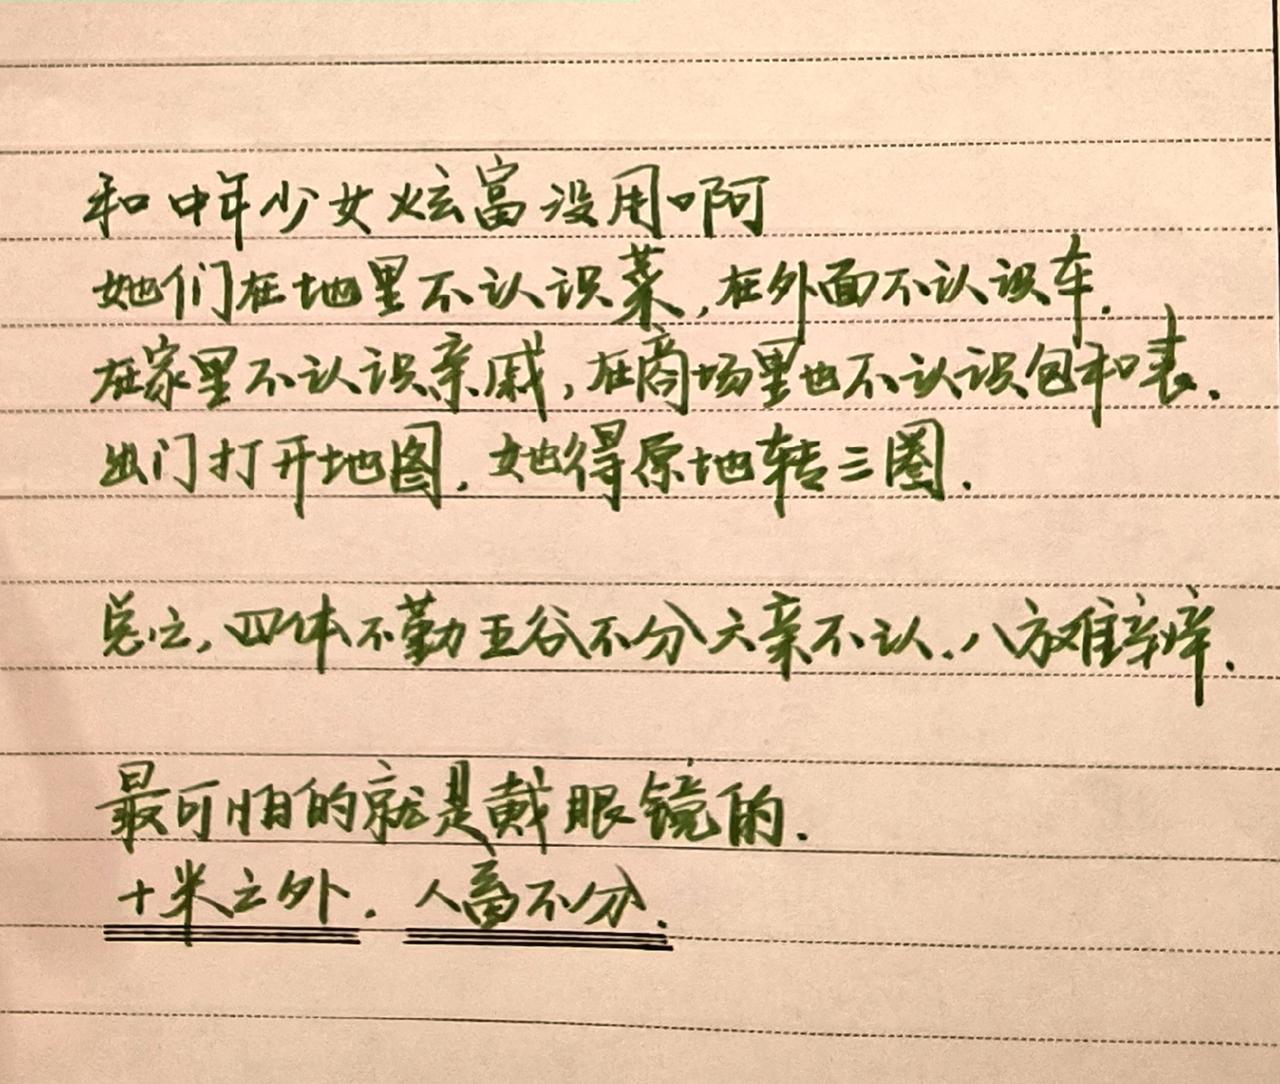 和中年少女炫富没用啊
她们在地里不认识菜,在外面不认识车.
在家里不认识亲戚,在商场里也不认识包和表.
出门打开地图.她得原地转三圈.
总之,四体不勤五谷不分六亲不认.八方难辨.
最可怕的就是戴眼镜的.
十米之外.人畜不分.